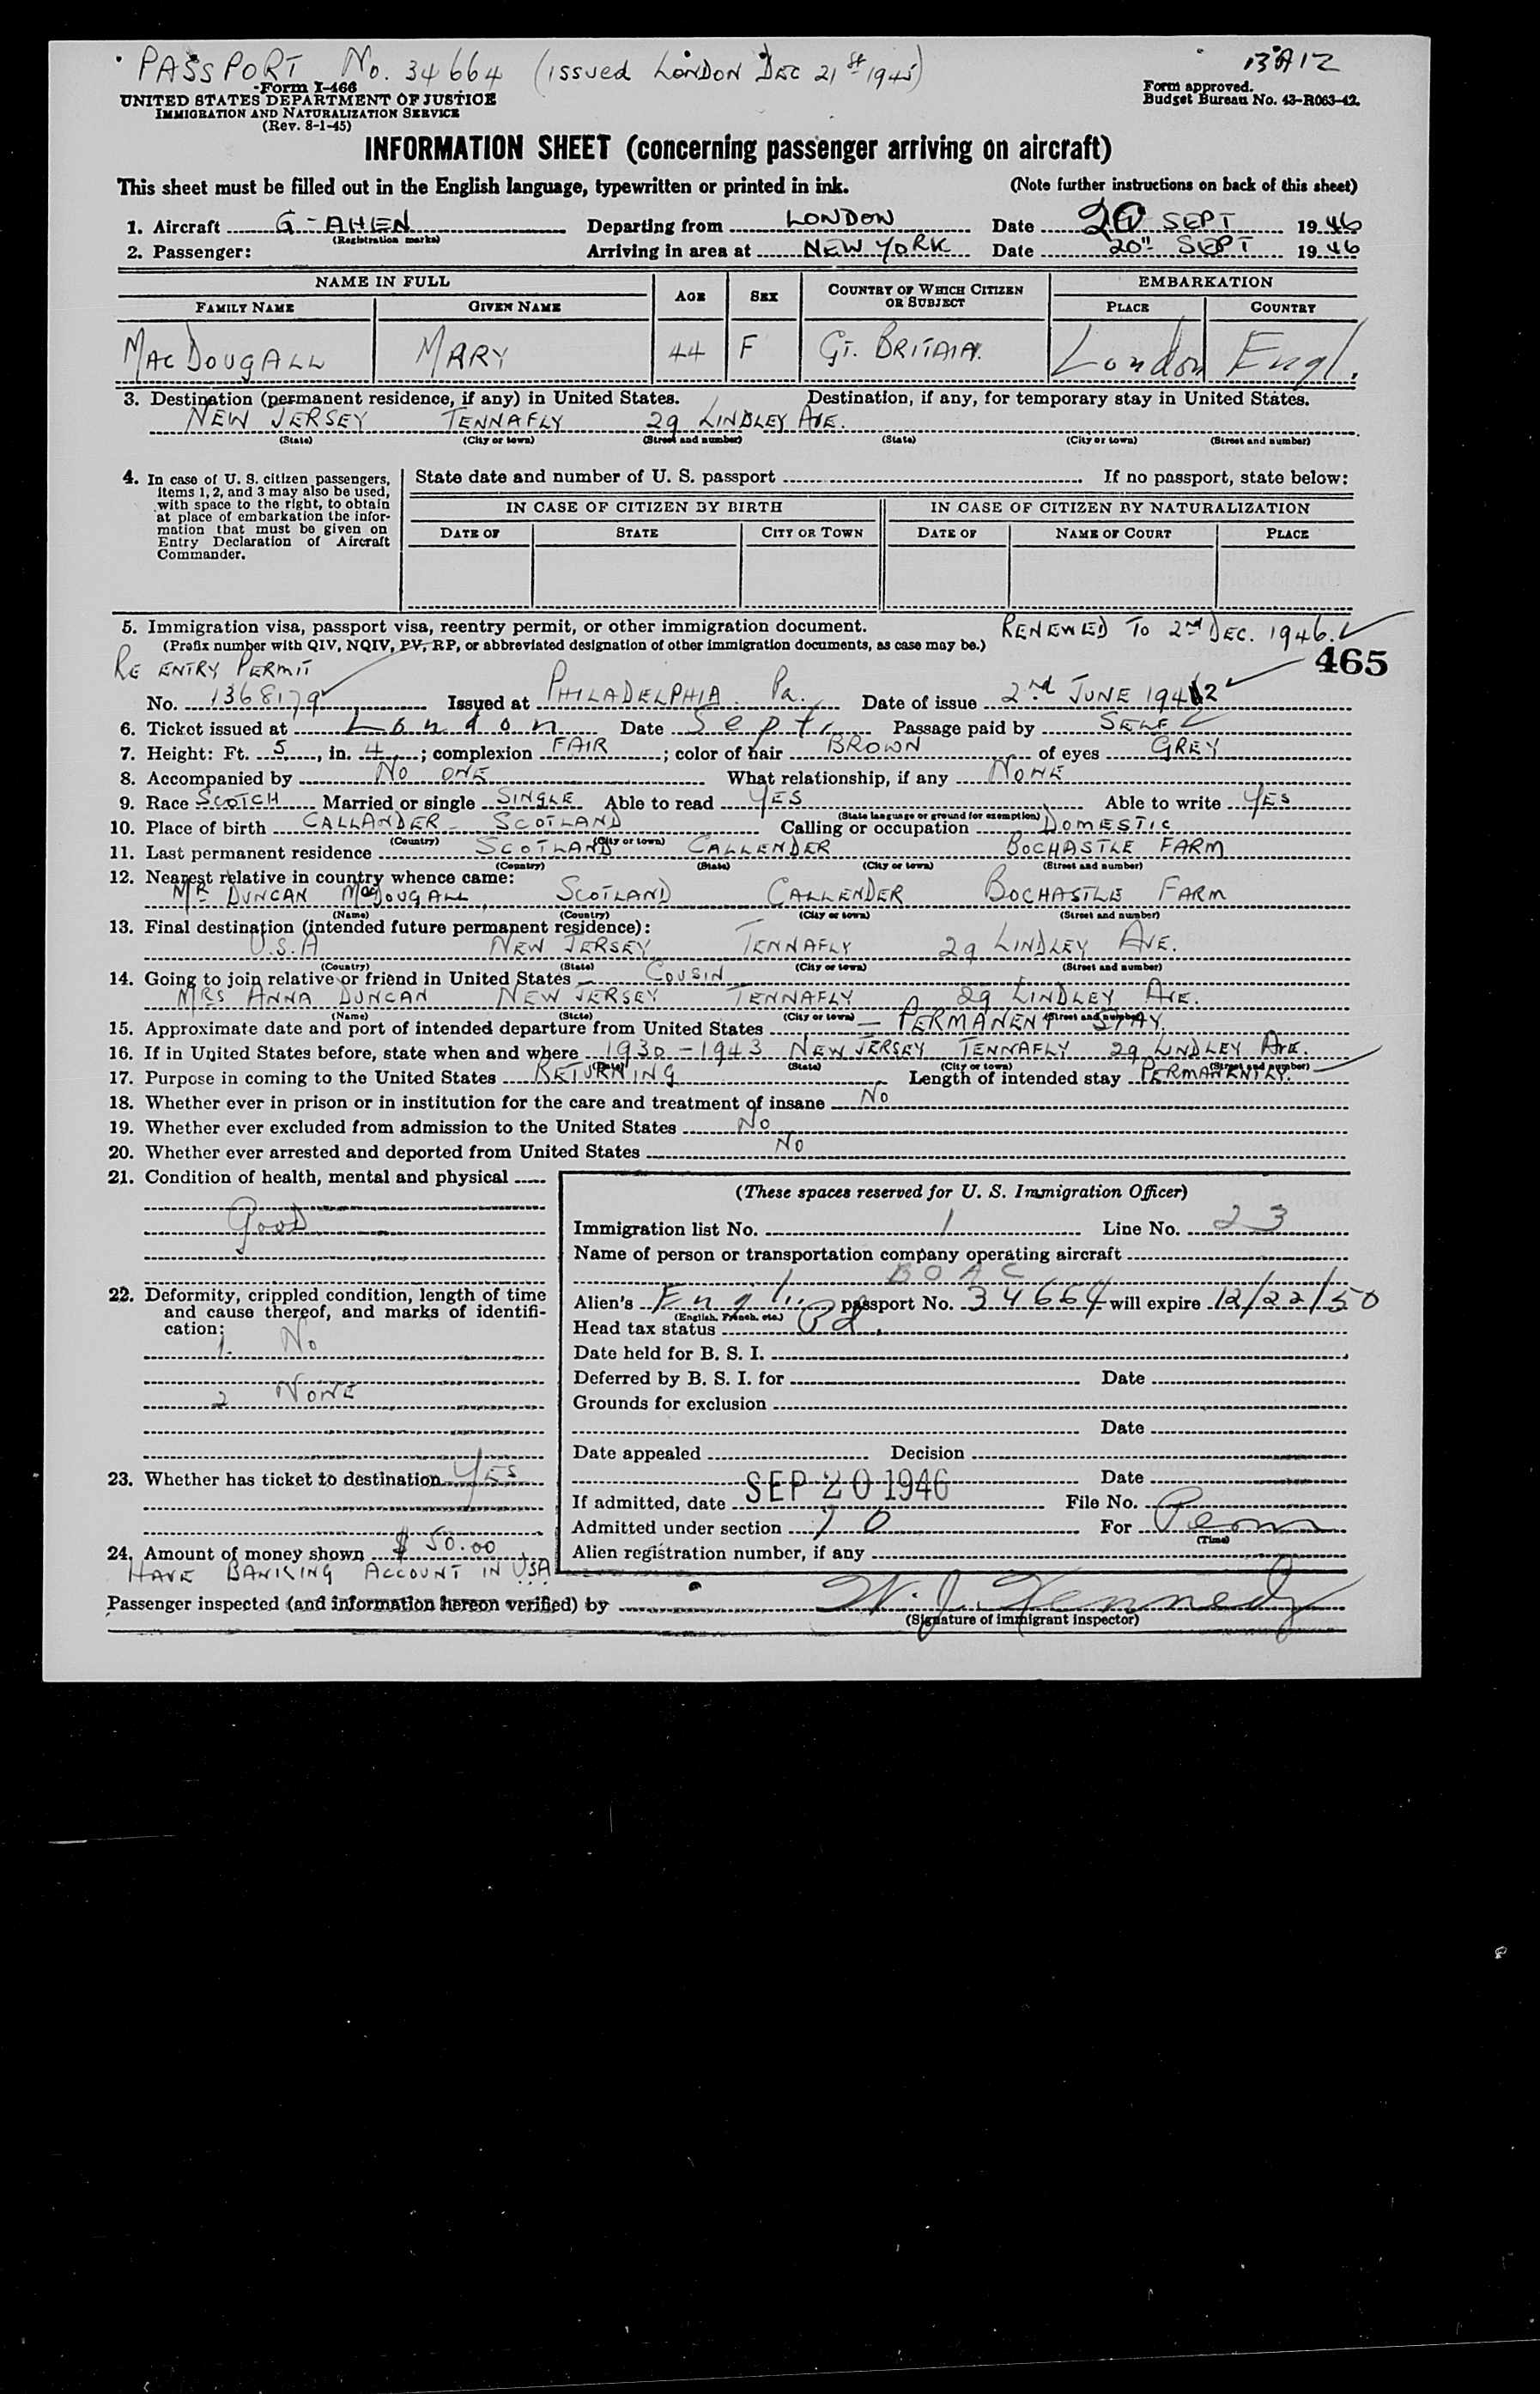 PASSPORT No. 34664 (issued LONDON DEC 21st 1945)
Form I-466
UNITED STATES DEPARTMENT OF JUSTICE
IMMIGRATION AND NATURALIZATION SERVICE
(Rev. 8-1-45)
Form approved.
Budget Bureau No. 43-R063-42.
INFORMATION SHEET (concerning passenger arriving on aircraft)
This sheet must be filled out in the English language, typewritten or printed in ink. (Note further instructions on back of this sheet)
1. Aircraft G-AHEN Departing from LONDON Date 20 SEPT 1946
(Registration marks)
2. Passenger: Arriving in area at NEW YORK Date 20" SEPT 1946
NAME IN FULL AGE SEX COUNTRY OF WHICH CITIZEN OR SUBJECT EMBARKATION
FAMILY NAME GIVEN NAME PLACE COUNTRY
MACDOUGALL MARY 44 F GT. BRITAIN. London Engl.
3. Destination (permanent residence, if any) in United States. Destination, if any, for temporary stay in United States.
NEW JERSEY TENNAFLY 29 LINDLEY AVE.
(State) (City or town) (Street and number) (State) (City or town) (Street and number)
4. In case of U. S. citizen passengers, items 1, 2, and 3 may also be used, with space to the right, to obtain at place of embarkation the information that must be given on Entry Declaration of Aircraft Commander.
State date and number of U. S. passport If no passport, state below:
IN CASE OF CITIZEN BY BIRTH IN CASE OF CITIZEN BY NATURALIZATION
DATE OF STATE CITY OR TOWN DATE OF NAME OF COURT PLACE
5. Immigration visa, passport visa, reentry permit, or other immigration document. RENEWED TO 2nd DEC. 1946.
(Prefix number with QIV, NQIV, PV, RP, or abbreviated designation of other immigration documents, as case may be.)
465
RE ENTRY PERMIT
No. 1368179 Issued at PHILADELPHIA Pa. Date of issue 2nd JUNE 1942
6. Ticket issued at London Date Sept. Passage paid by SELF
7. Height: Ft. 5, in. 4; complexion FAIR; color of hair BROWN of eyes GREY
8. Accompanied by NO ONE What relationship, if any NONE
9. Race SCOTCH Married or single SINGLE Able to read YES Able to write YES
(State language or ground for exemption)
10. Place of birth CALLANDER - SCOTLAND Calling or occupation DOMESTIC
(Country) (City or town)
11. Last permanent residence SCOTLAND CALLENDER BOCHASTLE FARM
(Country) (State) (City or town) (Street and number)
12. Nearest relative in country whence came:
MR DUNCAN MacDOUGALL, SCOTLAND CALLENDER BOCHASTLE FARM
(Name) (Country) (City or town) (Street and number)
13. Final destination (intended future permanent residence):
U.S.A NEW JERSEY TENNAFLY 29 LINDLEY AVE.
(Country) (State) (City or town) (Street and number)
14. Going to join relative or friend in United States COUSIN
MRS ANNA DUNCAN NEW JERSEY TENNAFLY 29 LINDLEY AVE.
(Name) (State) (City or town) (Street and number)
15. Approximate date and port of intended departure from United States — PERMANENT STAY.
16. If in United States before, state when and where 1930-1943 NEW JERSEY TENNAFLY 29 LINDLEY AVE.
(State) (City or town) (Street and number)
17. Purpose in coming to the United States RETURNING Length of intended stay PERMANENTLY.
18. Whether ever in prison or in institution for the care and treatment of insane NO
19. Whether ever excluded from admission to the United States NO
20. Whether ever arrested and deported from United States NO
21. Condition of health, mental and physical
GOOD
22. Deformity, crippled condition, length of time and cause thereof, and marks of identification:
1. NO
2 NONE
23. Whether has ticket to destination YES
24. Amount of money shown $50.00
HAVE BANKING ACCOUNT IN USA
(These spaces reserved for U. S. Immigration Officer)
Immigration list No. 1 Line No. 23
Name of person or transportation company operating aircraft
BOAC
Alien's Engl. passport No. 34664 will expire 12/22/50
(English, French, etc.)
Head tax status Pd.
Date held for B. S. I.
Deferred by B. S. I. for Date
Grounds for exclusion
Date
Date appealed Decision
Date
If admitted, date SEP 20 1946 File No.
Admitted under section For Perm
(Time)
Alien registration number, if any
Passenger inspected (and information hereon verified) by W. J. Kennedy
(Signature of immigrant inspector)